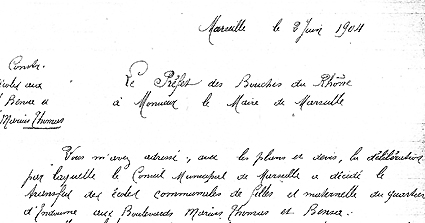 Marseille le 8 Juin 1904
Constr.
écoles aux
Bd Bensa et
Marius Thomas
Le Préfet des Bouches du Rhône
à Monsieur le Maire de Marseille
Vous m'avez adressé, avec les plans et devis, la délibération
par laquelle le Conseil Municipal de Marseille a décidé le
transfert des écoles communales de filles et maternelle du quartier
d'Endoume aux Boulevards Marius Thomas et Bensa.